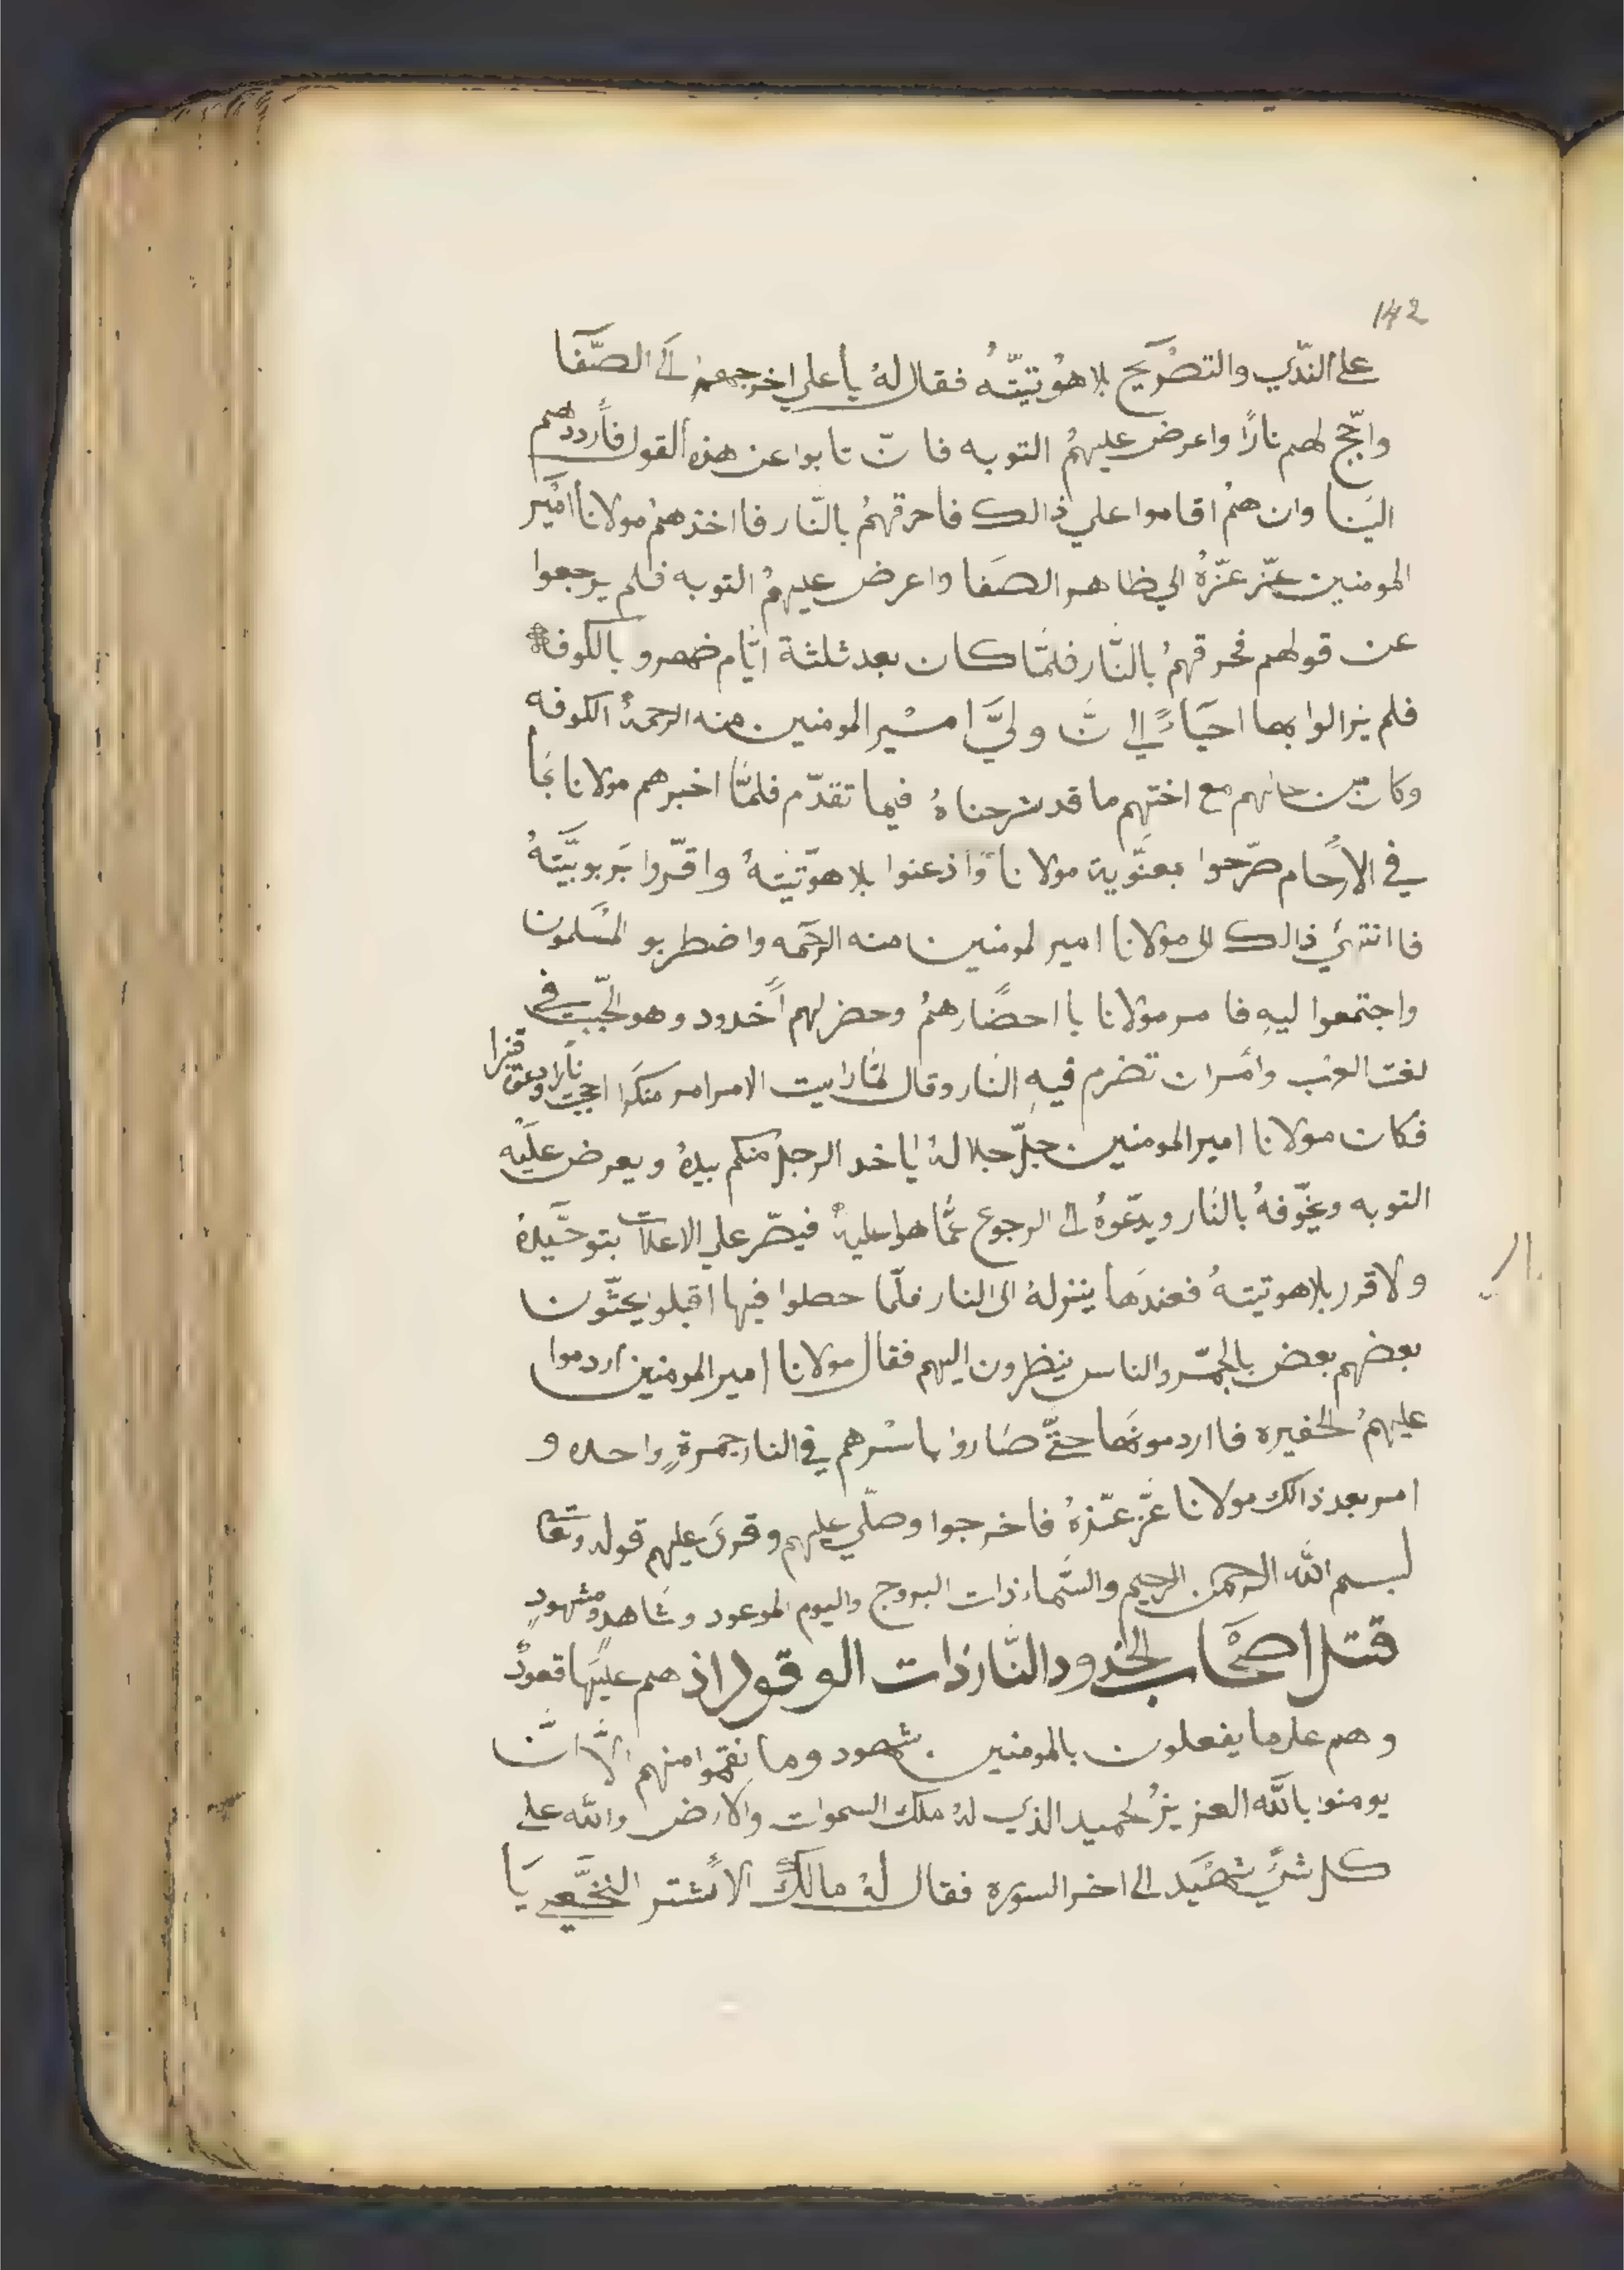 142
علي الندي والتصريح بلاهوتيته فقال له يا علي اخرجهم الى الصفا
واجّج لهم نارًا واعرض عليهم التوبه فان تابوا عن هذه القول فأرددهم
الينا وان هم اقاموا علي ذالك فاحرقهم بالنّار فااخذهم مولانا امير
المومنين عزّ عزّهُ الي ظاهر الصفا واعرض عليهم التوبه فلم يرجعوا
عن قولهم فحرقهم بالنّار فلمّا كان بعد ثلثة ايّام ضهرو بالكوفه
فلم يزالوا بها احياءً الي ان ولي امير المومنين منه الرحمة الكوفه
وكان من حالهم مع اختهم ما قد شرحناهُ فيما تقدّم فلمّا اخبرهم مولانا بما
في الارحام صرّحوا بمعنوية مولانا واذعنوا بلاهوتيته واقرّوا بربوبيّته
فاانتهي ذالك الى مولانا امير لمومنين منه الرحمه واضطربو المسلمون
واجتمعوا ليه فامر مولانا بااحضارهم وحضر لهم اخدود وهو الجب في
لغت العرب وأمر ان تضرم فيه النار وقال لمّا رايت الامر امر منكرا اججت نارا ودعوت قنبرا
فكان مولانا امير المومنين جلّ جلاله ياخد الرجل منكم بيده ويعرض عليه
التوبه ويخوّفهُ بالنار ويدعوهُ الى الرجوع عمّا هوا عليه فيصّر علي الاعلان بتوحيده
ولاقرر بلاهوتيته فعندها ينزله الى النار فلمّا حصلوا فيها اقبلو يحثّون
بعضهم بعض بالجمر والناس ينظرون اليهم فقال مولانا امير المومنين اردموا
عليهم الحفيره فااردمونها حتّى صاروا باسرهم في النار جمرةٍ واحده و
امر بعد ذالك مولانا عزّ عزّهُ فاخرجوا وصلّي عليهم وقرى عليهم قوله وتعا
لبسم الله الرحمن الرحيم والسّماء ذات البروج واليوم الموعود وشاهدٍ ومشهودٍ
قتل اصحاب الخدود النّار ذات الوقود اذ هم عليها قعودٌ
وهم علي ما يفعلون بالمومنين شهود وما نقموا منهم الّا انّ
يومنوا بالله العزيز لحميد الذي له ملك السموات والارض والله علي
كل شيً شهيد الى اخر السوره فقال لهُ مالك الاشتر النخعي يا